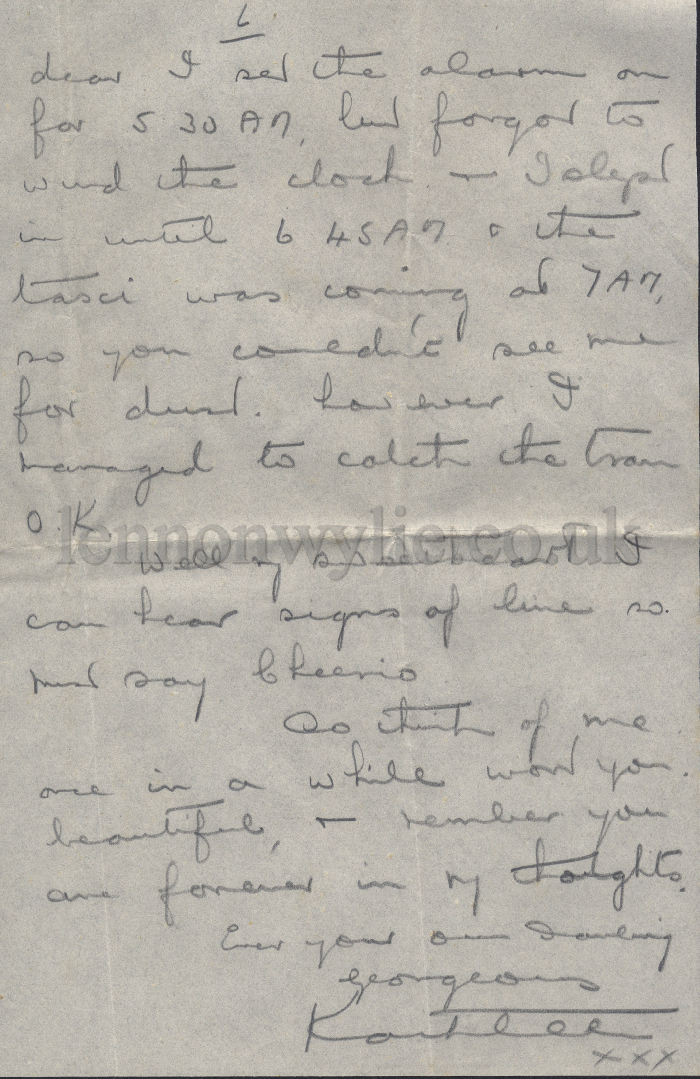 6
dear I set the alarm on
for 5 30 AM, but forgot to
wind the clock - I slept
in until 6 45 AM & the
taxi was coming at 7 AM,
so you couldn't see me
for dust. however I
managed to catch the train
O.K.
lennonwylie.co.uk
Well my sweetheart I
can hear signs of line so.
must say Cheerio
Do think of me
once in a while won't you.
beautiful, & remember you
are forever in my thoughts.
Ever your own darling
georgeous
Kathleen
xxx